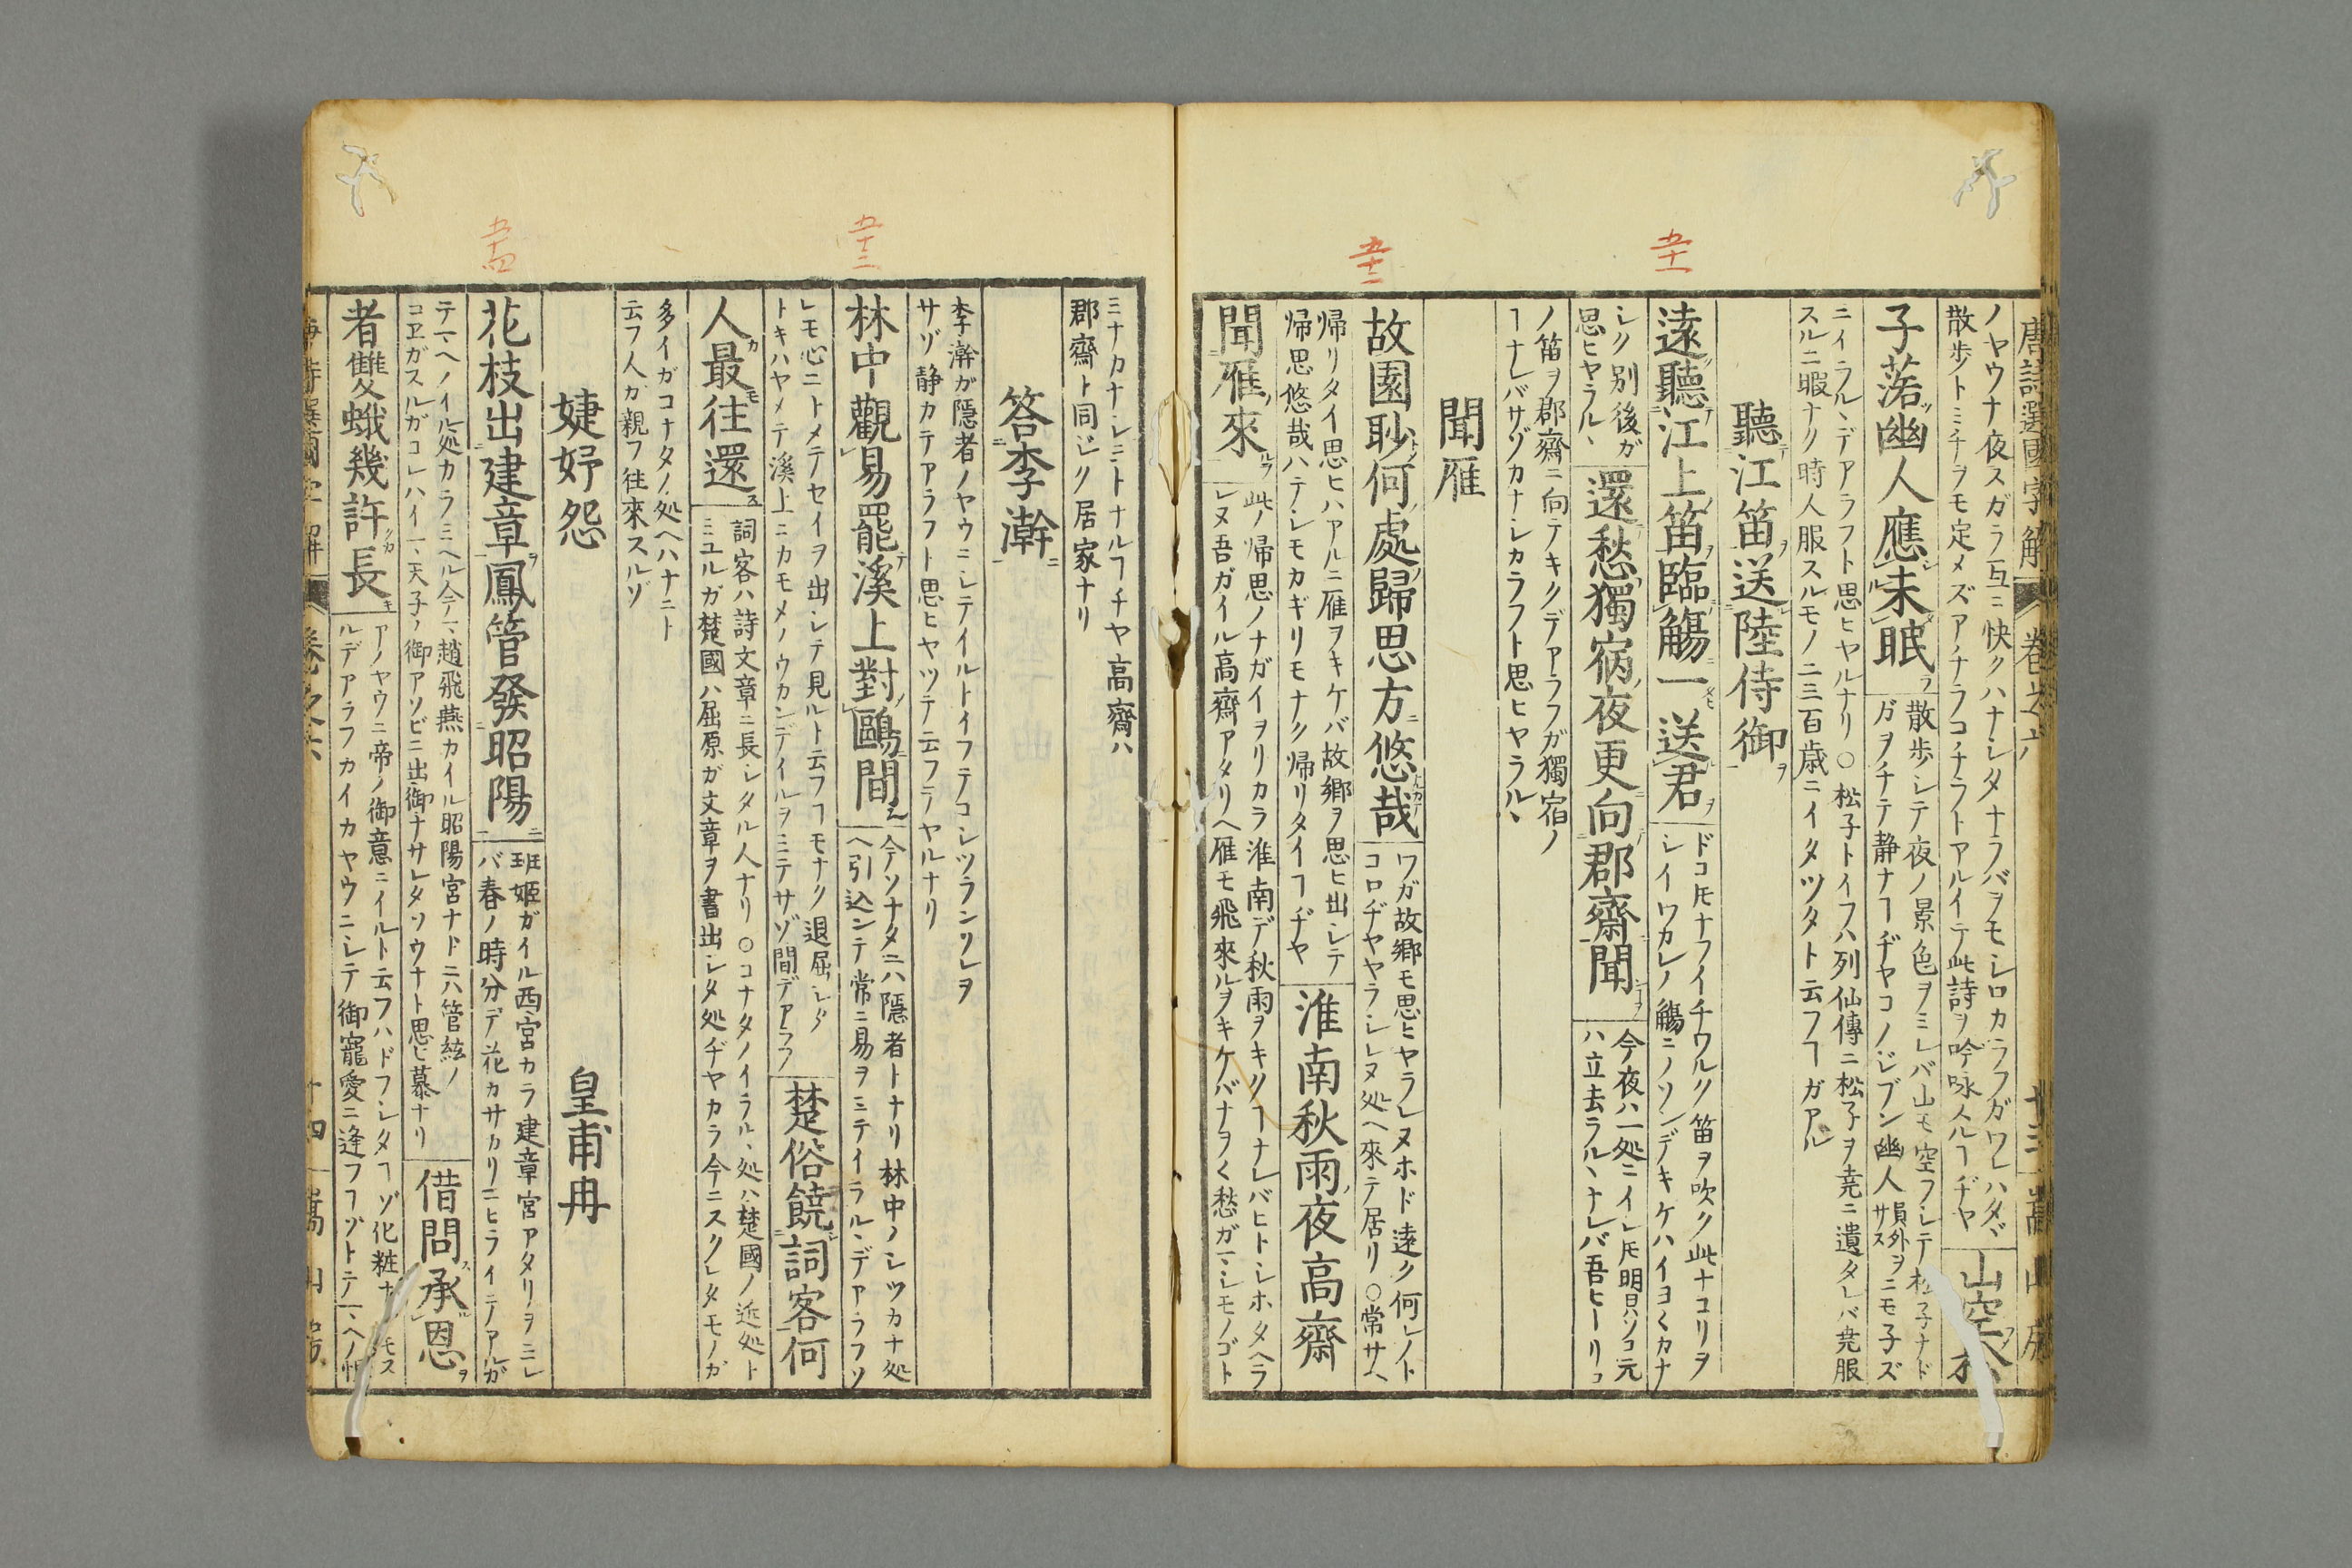 五十一
五十二
唐詩選國字解 卷之六 十三 嵩山房
ノヤウナ夜スガラ互ニ快クハナシタナフバヲモシロカラフガワレハタヾ
散歩トミチヲモ定メズアナラコチラトアルイテ此詩ヲ吟咏スルヿヂヤ
山空松
子落幽人應未眠
散歩シテ夜ノ景色ヲミレバ山モ空フシテ松子ナド
方ヲチテ静ナヿヂヤコノジブン幽人員外ヲサスニモ子ズ
ニイラルヽデアラフト思ヒヤルナリ ○松子トイフハ列仙傳ニ松子ヲ尭ニ遺タレバ尭服
スルニ暇ナク時人服スルモノ二三百歳ニイタツタト云フヿガアル
聽江笛送陸侍御
遠聽江上笛臨觴一送君
ドコトモナフイチワルク笛ヲ吹ク此ナコリヲ
シイワカレノ觴ニノソンデキケハイヨ〱カナ
シク別後ガ
思ヒヤラルヽ
還愁獨宿夜更向郡齋聞
今夜ハ一処ニイレトモ明日ハソコ元
ハ立去ラルヽナレバ吾ヒトーリコ
ノ笛ヲ郡齋ニ向テキクデアラフガ獨宿ノ
ヿナレバサゾカナシカラフト思ヒヤラルヽ
聞雁
故園眇何處歸思方悠哉
ワガ故郷モ思ヒヤラレヌホド遠ク何レノト
コロヂヤヤラシレヌ処ヘ來テ居リ ○常サヘ
帰リタイ思ヒハアルニ雁ヲキケバ故郷ヲ思ヒ出シテ
帰思悠哉ハテシモカギリモナク帰リタイヿヂヤ
淮南秋雨夜高齋
聞雁來
此ノ帰思ノナガイヲリカラ淮南デ秋雨ヲキクヿナレバヒトシホタヘラ
レヌ吾ガイル高齋アタリヘ雁モ飛來ルヲキケバナヲ〱愁ガマシモノゴト
五十三
五十四
ミナカナシミトナルヿチヤ高齋ハ
郡齋ト同ジク居家ナリ
答李澣
李澣ガ隱者ノヤウニシテイルトイフテコシツランリレヲ
サゾ静カテアラフト思ヒヤツテ云フテヤルナリ
林中觀易罷溪上對鷗閒
今ソナタニハ隱者トナリ林中ノシツカナ処
ヘ引込ンテ常ニ易ヲミテイラルヽデアラフソ
レモ心ニトメテセイヲ出シテ見ルト云フヿモナク退屈シタ
トキハヤメテ溪上ニカモメノウカンデイルヲミテサゾ閒デアラフ
楚俗饒詞客何
人最往還
詞客ハ詩文章ニ長シタル人ナリ ○コナタノイラルヽ処ハ楚國ノ近処ト
ミユルガ楚國ハ屈原ガ文章ヲ書出シタ処ヂヤカラ今ニスクレタモノガ
多イガコナタノ処ヘハナニト
云フ人ガ親フ往來スルゾ
婕妤怨 皇甫冉
花枝出建章鳳管發昭陽
班姫ガイル西宮カラ建章宮アタリヲミレ
バ春ノ時分デ花カサカリニヒライテアルガ
テマヘノイル処カラミヘル今マ趙飛燕カイル昭陽宮ナドニハ管絃ノ
コヱガスルガコレハイマ天子ノ御アソビニ出御ナサレタソウナト思ヒ慕ナリ
借問承恩
者雙蛾幾許長
アノヤウニ帝ノ御意ニイルト云フハドフシタヿゾ化粧ナ
ルデアラフカイカヤウニシテ御寵愛ニ逢フヿゾトテマヘノ
卷之六 十四 嵩山房